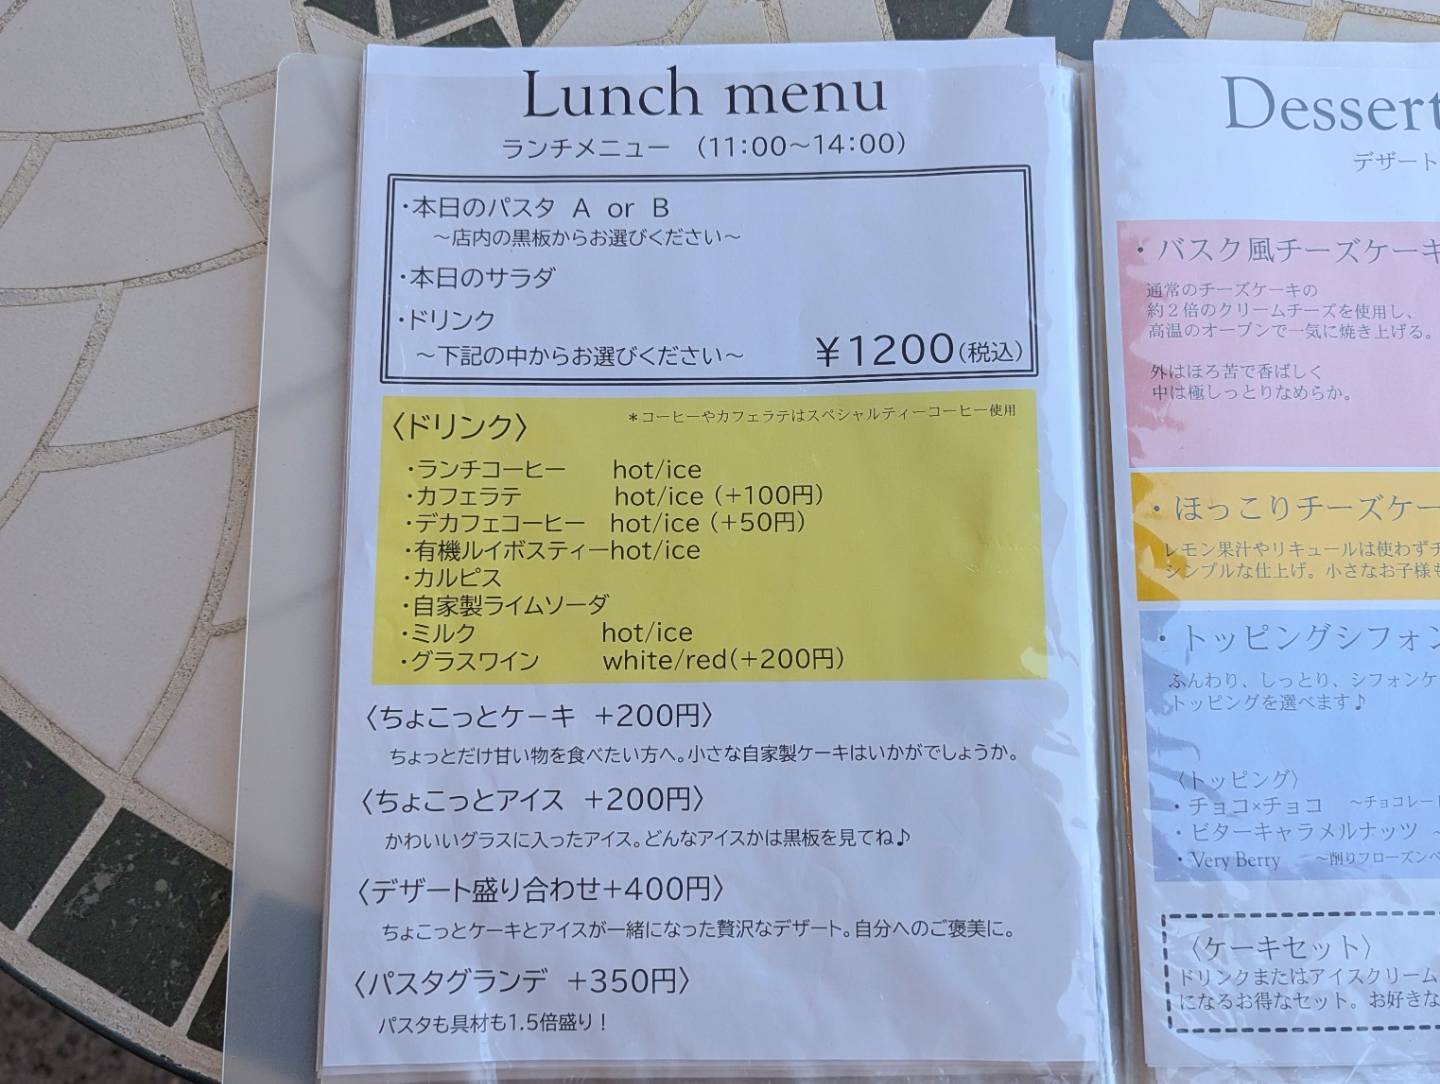 Lunch menu
ランチメニュー (11:00～14:00)
・本日のパスタ A or B
～店内の黒板からお選びください～
・本日のサラダ
・ドリンク
～下記の中からお選びください～ ￥1200(税込)
〈ドリンク〉 *コーヒーやカフェラテはスペシャルティーコーヒー使用
・ランチコーヒー hot/ice
・カフェラテ hot/ice (+100円)
・デカフェコーヒー hot/ice (+50円)
・有機ルイボスティーhot/ice
・カルピス
・自家製ライムソーダ
・ミルク hot/ice
・グラスワイン white/red(+200円)
〈ちょこっとケーキ +200円〉
ちょっとだけ甘い物を食べたい方へ。小さな自家製ケーキはいかがでしょうか。
〈ちょこっとアイス +200円〉
かわいいグラスに入ったアイス。どんなアイスかは黒板を見てね♪
〈デザート盛り合わせ+400円〉
ちょこっとケーキとアイスが一緒になった贅沢なデザート。自分へのご褒美に。
〈パスタグランデ +350円〉
パスタも具材も1.5倍盛り！
Dessert
デザート
・バスク風チーズケーキ
通常のチーズケーキの
約２倍のクリームチーズを使用し、
高温のオーブンで一気に焼き上げる。
外はほろ苦で香ばしく
中は極しっとりなめらか。
・ほっこりチーズケー
レモン果汁やリキュールは使わずチ
シンプルな仕上げ。小さなお子様も
・トッピングシフォン
ふんわり、しっとり、シフォンケ
トッピングを選べます♪
〈トッピング〉
・チョコ×チョコ ～チョコレート
・ビターキャラメルナッツ ～
・Very Berry ～削りフローズンベ
〈ケーキセット〉
ドリンクまたはアイスクリーム
になるお得なセット。お好きな